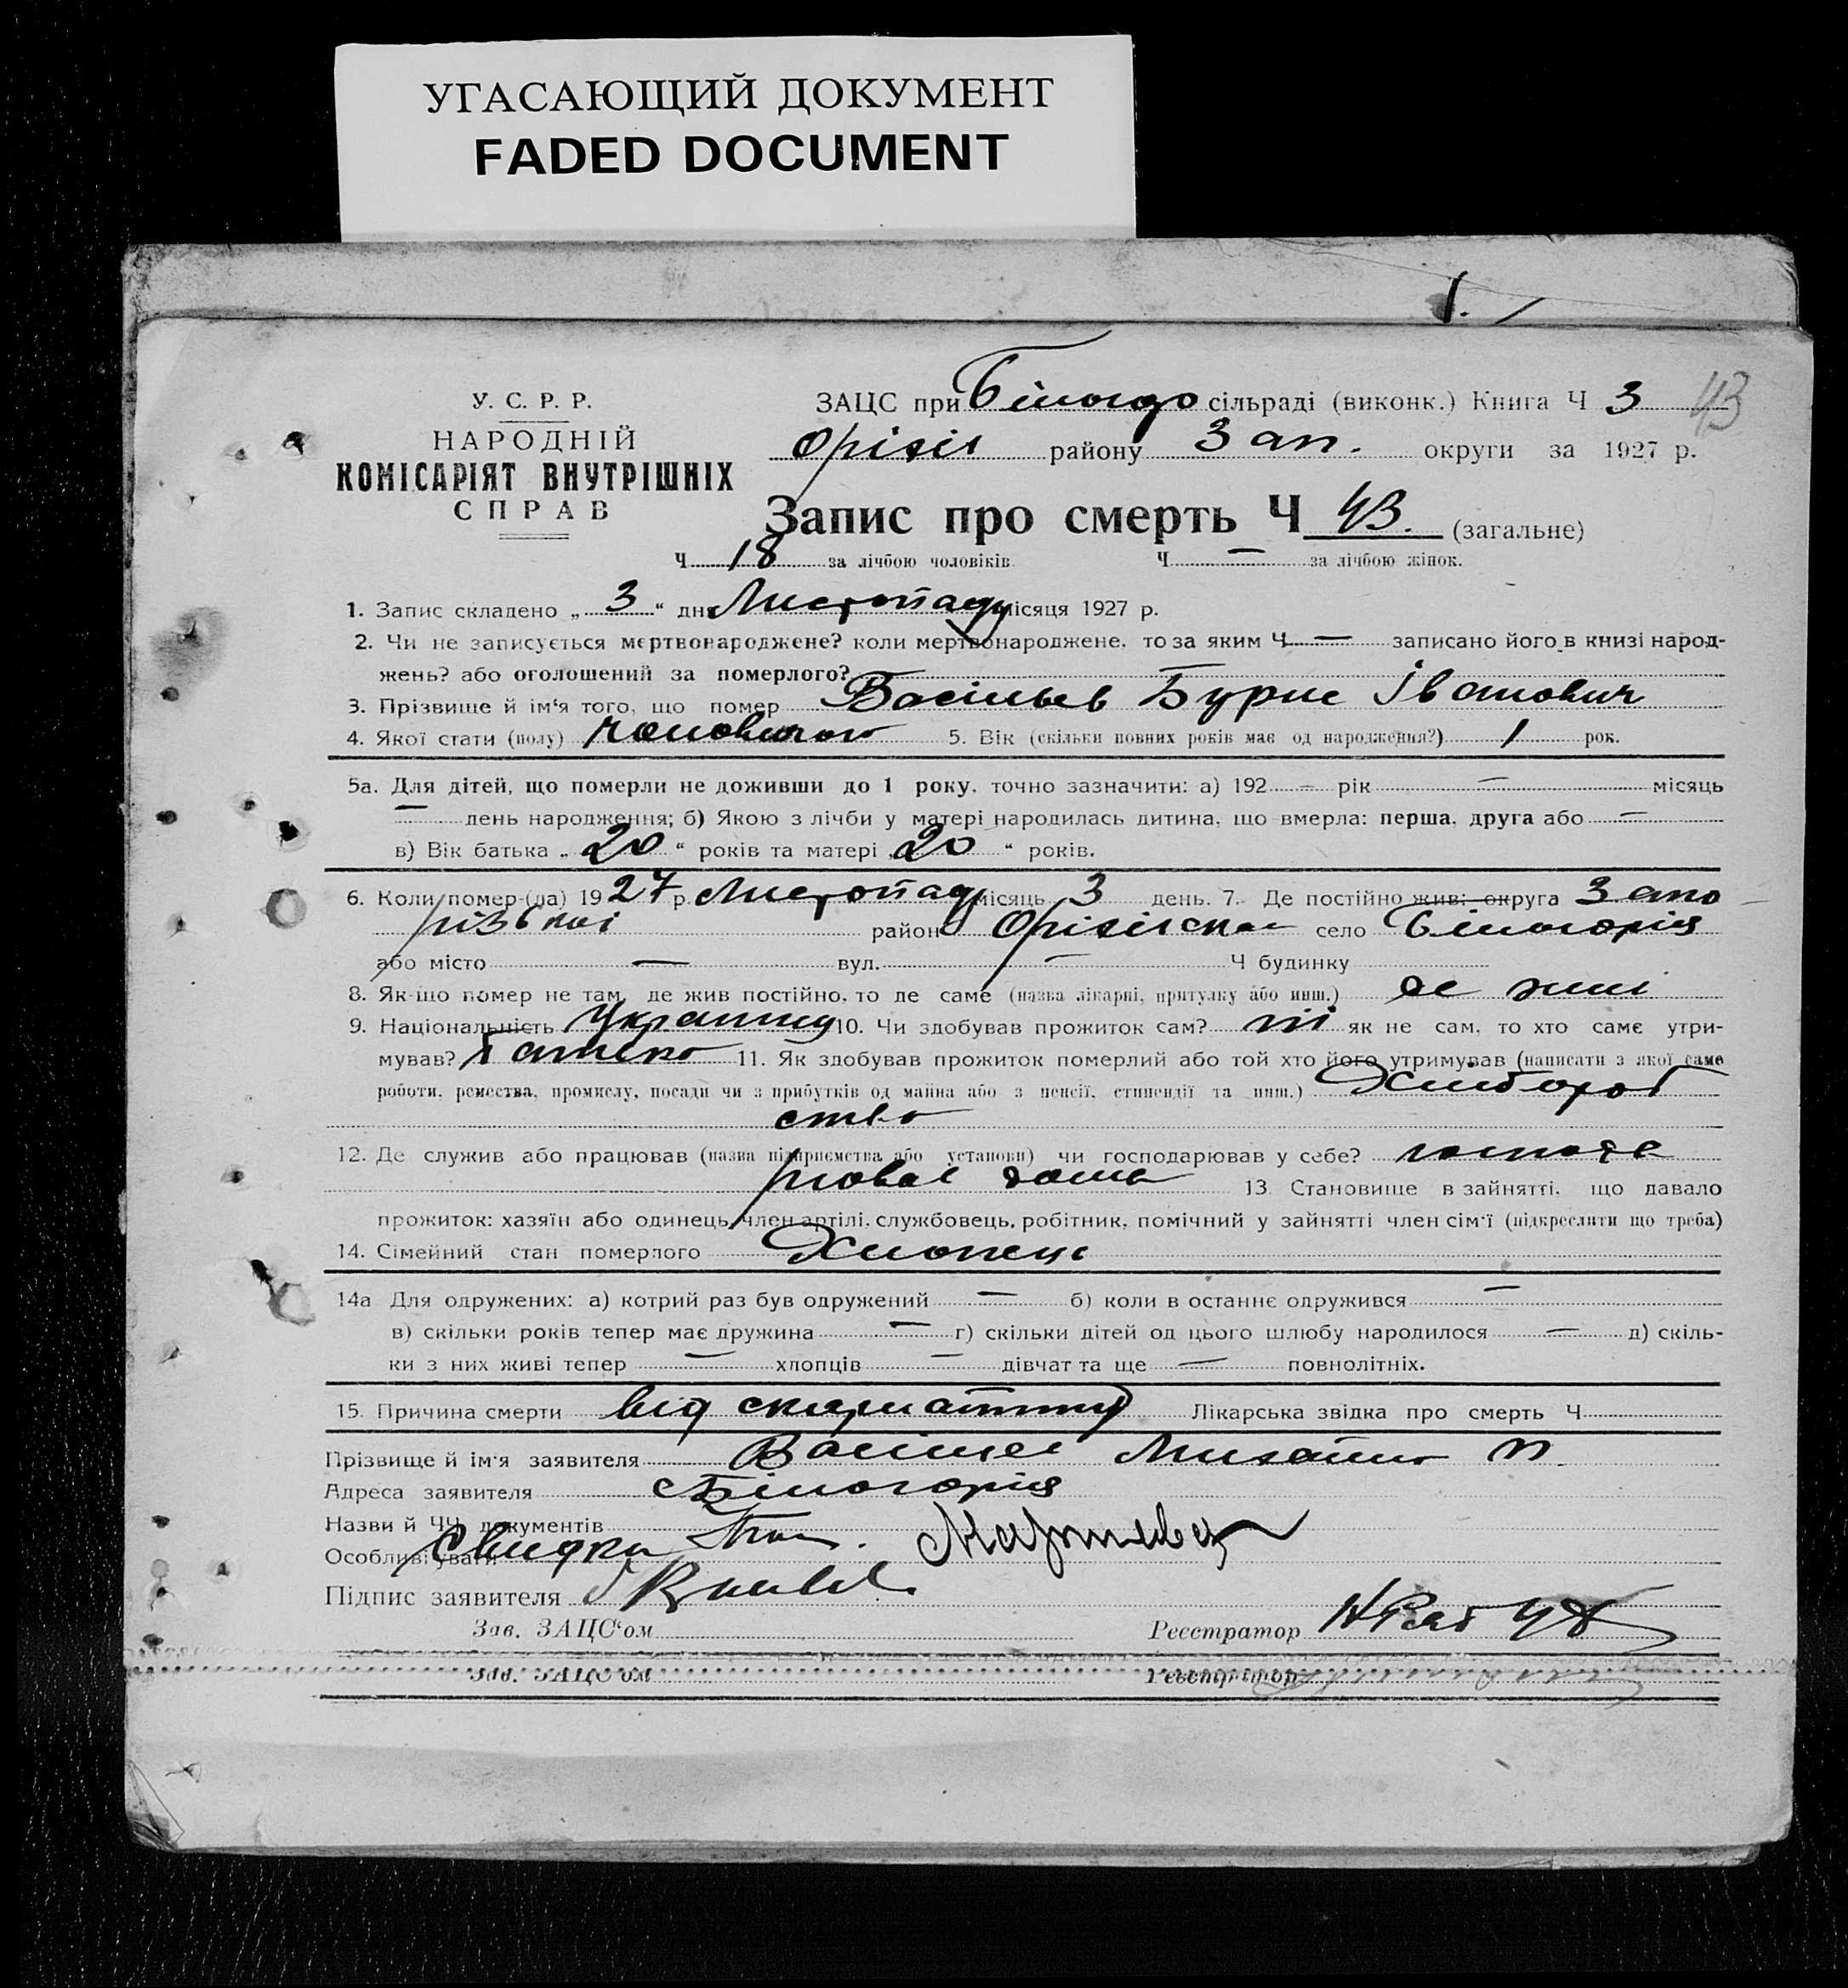 УГАСАЮЩИЙ ДОКУМЕНТ
FADED DOCUMENT
У. С. Р. Р.
НАРОДНІЙ
КОМІСАРІЯТ ВНУТРІШНІХ
СПРАВ
ЗАЦС при Білого сільраді (виконк.) Книга Ч 3 43
Оріхів району Зап. округи за 1927 р.
Запис про смерть Ч 43. (загальне)
Ч 18 за лічбою чоловіків. Ч — за лічбою жінок.
1. Запис складено „ 3 “ дня Листопаду місяця 1927 р.
2. Чи не записується мертвонароджене? коли мертвонароджене, то за яким Ч — записано його в книзі народ-
жень? або оголошений за померлого?
3. Прізвище й ім‘я того, що помер Васільєв Бурис Іванович
4. Якої стати (полу) чоловичого 5. Вік (скільки повних років має од народження?) 1 рок.
5а. Для дітей, що померли не доживши до 1 року, точно зазначити: а) 192 — рік — місяць
— день народження; б) Якою з лічби у матері народилась дитина, що вмерла: перша, друга або —
в) Вік батька „ 20 “ років та матері „ 20 “ років.
6. Коли помер-(ла) 1927 р. Листопаду місяць 3 день. 7. Де постійно жив: округа Запо
різької район Оріхівском село Білогорія
або місто — вул. — Ч будинку
8. Як-що помер не там, де жив постійно, то де саме (назва лікарні, притулку або инш.)
9. Національність Українец 10. Чи здобував прожиток сам? ні як не сам, то хто саме утри-
мував? Батько 11. Як здобував прожиток померлий або той хто його утримував (написати з якої саме
роботи, ремества, промислу, посади чи з прибутків од майна або з пенсії, стипендії та инш.) Хлібороб
ство
12. Де служив або працював (назва підприємства або установи) чи господарював у себе? господа
рював дома 13. Становище в зайнятті, що давало
прожиток: хазяїн або одинець, член артілі, службовець, робітник, помічний у зайнятті член сім‘ї (підкреслити що треба)
14. Сімейний стан померлого Хлопець
14а Для одружених: а) котрий раз був одружений — б) коли в останнє одружився —
в) скільки років тепер має дружина — г) скільки дітей од цього шлюбу народилося — д) скіль-
ки з них живі тепер — хлопців — дівчат та ще — повнолітніх.
15. Причина смерти від скарлатини Лікарська звідка про смерть Ч
Прізвище й ім‘я заявителя Михайло П.
Адреса заявителя с Білогорія
Назви й ЧЧ документів
Особливі уваги
Підпис заявителя
Зав. ЗАЦС‘ом Реєстратор
Зав. ЗАЦС‘ом Реєстратор